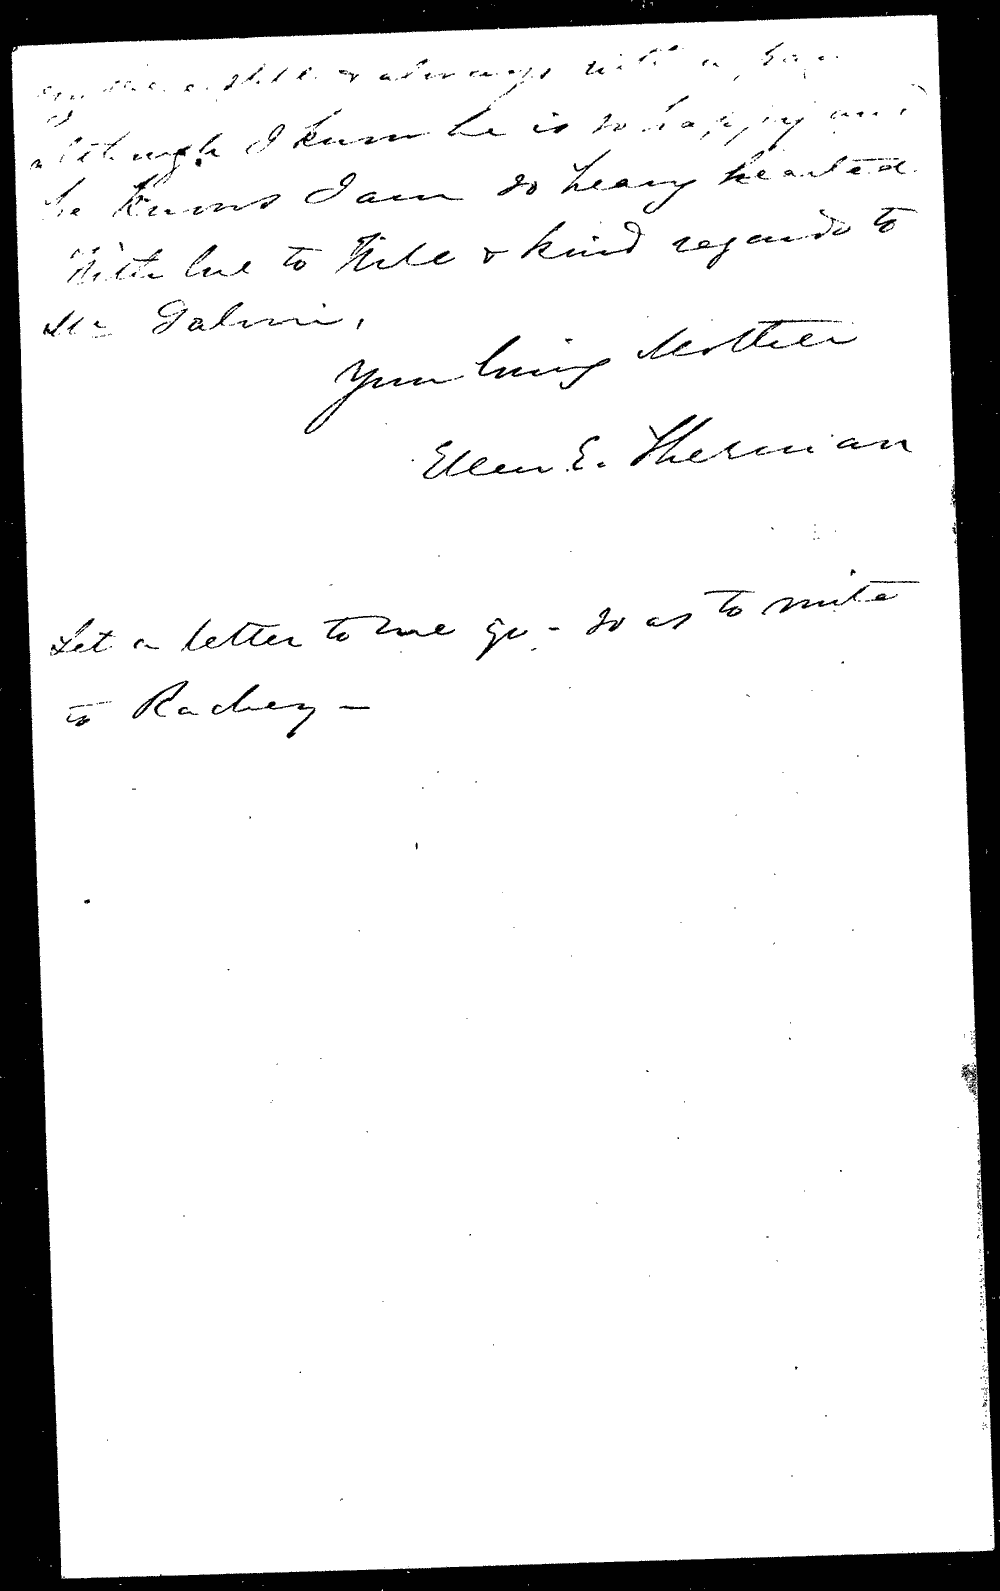 & always with a
although I know he is so happy and
he knows I am so heavy hearted.
With love to & kind regards to
Mr
Your loving Mother
Ellen E. Sherman
Let a letter to me go - so as to write
to Rachey -